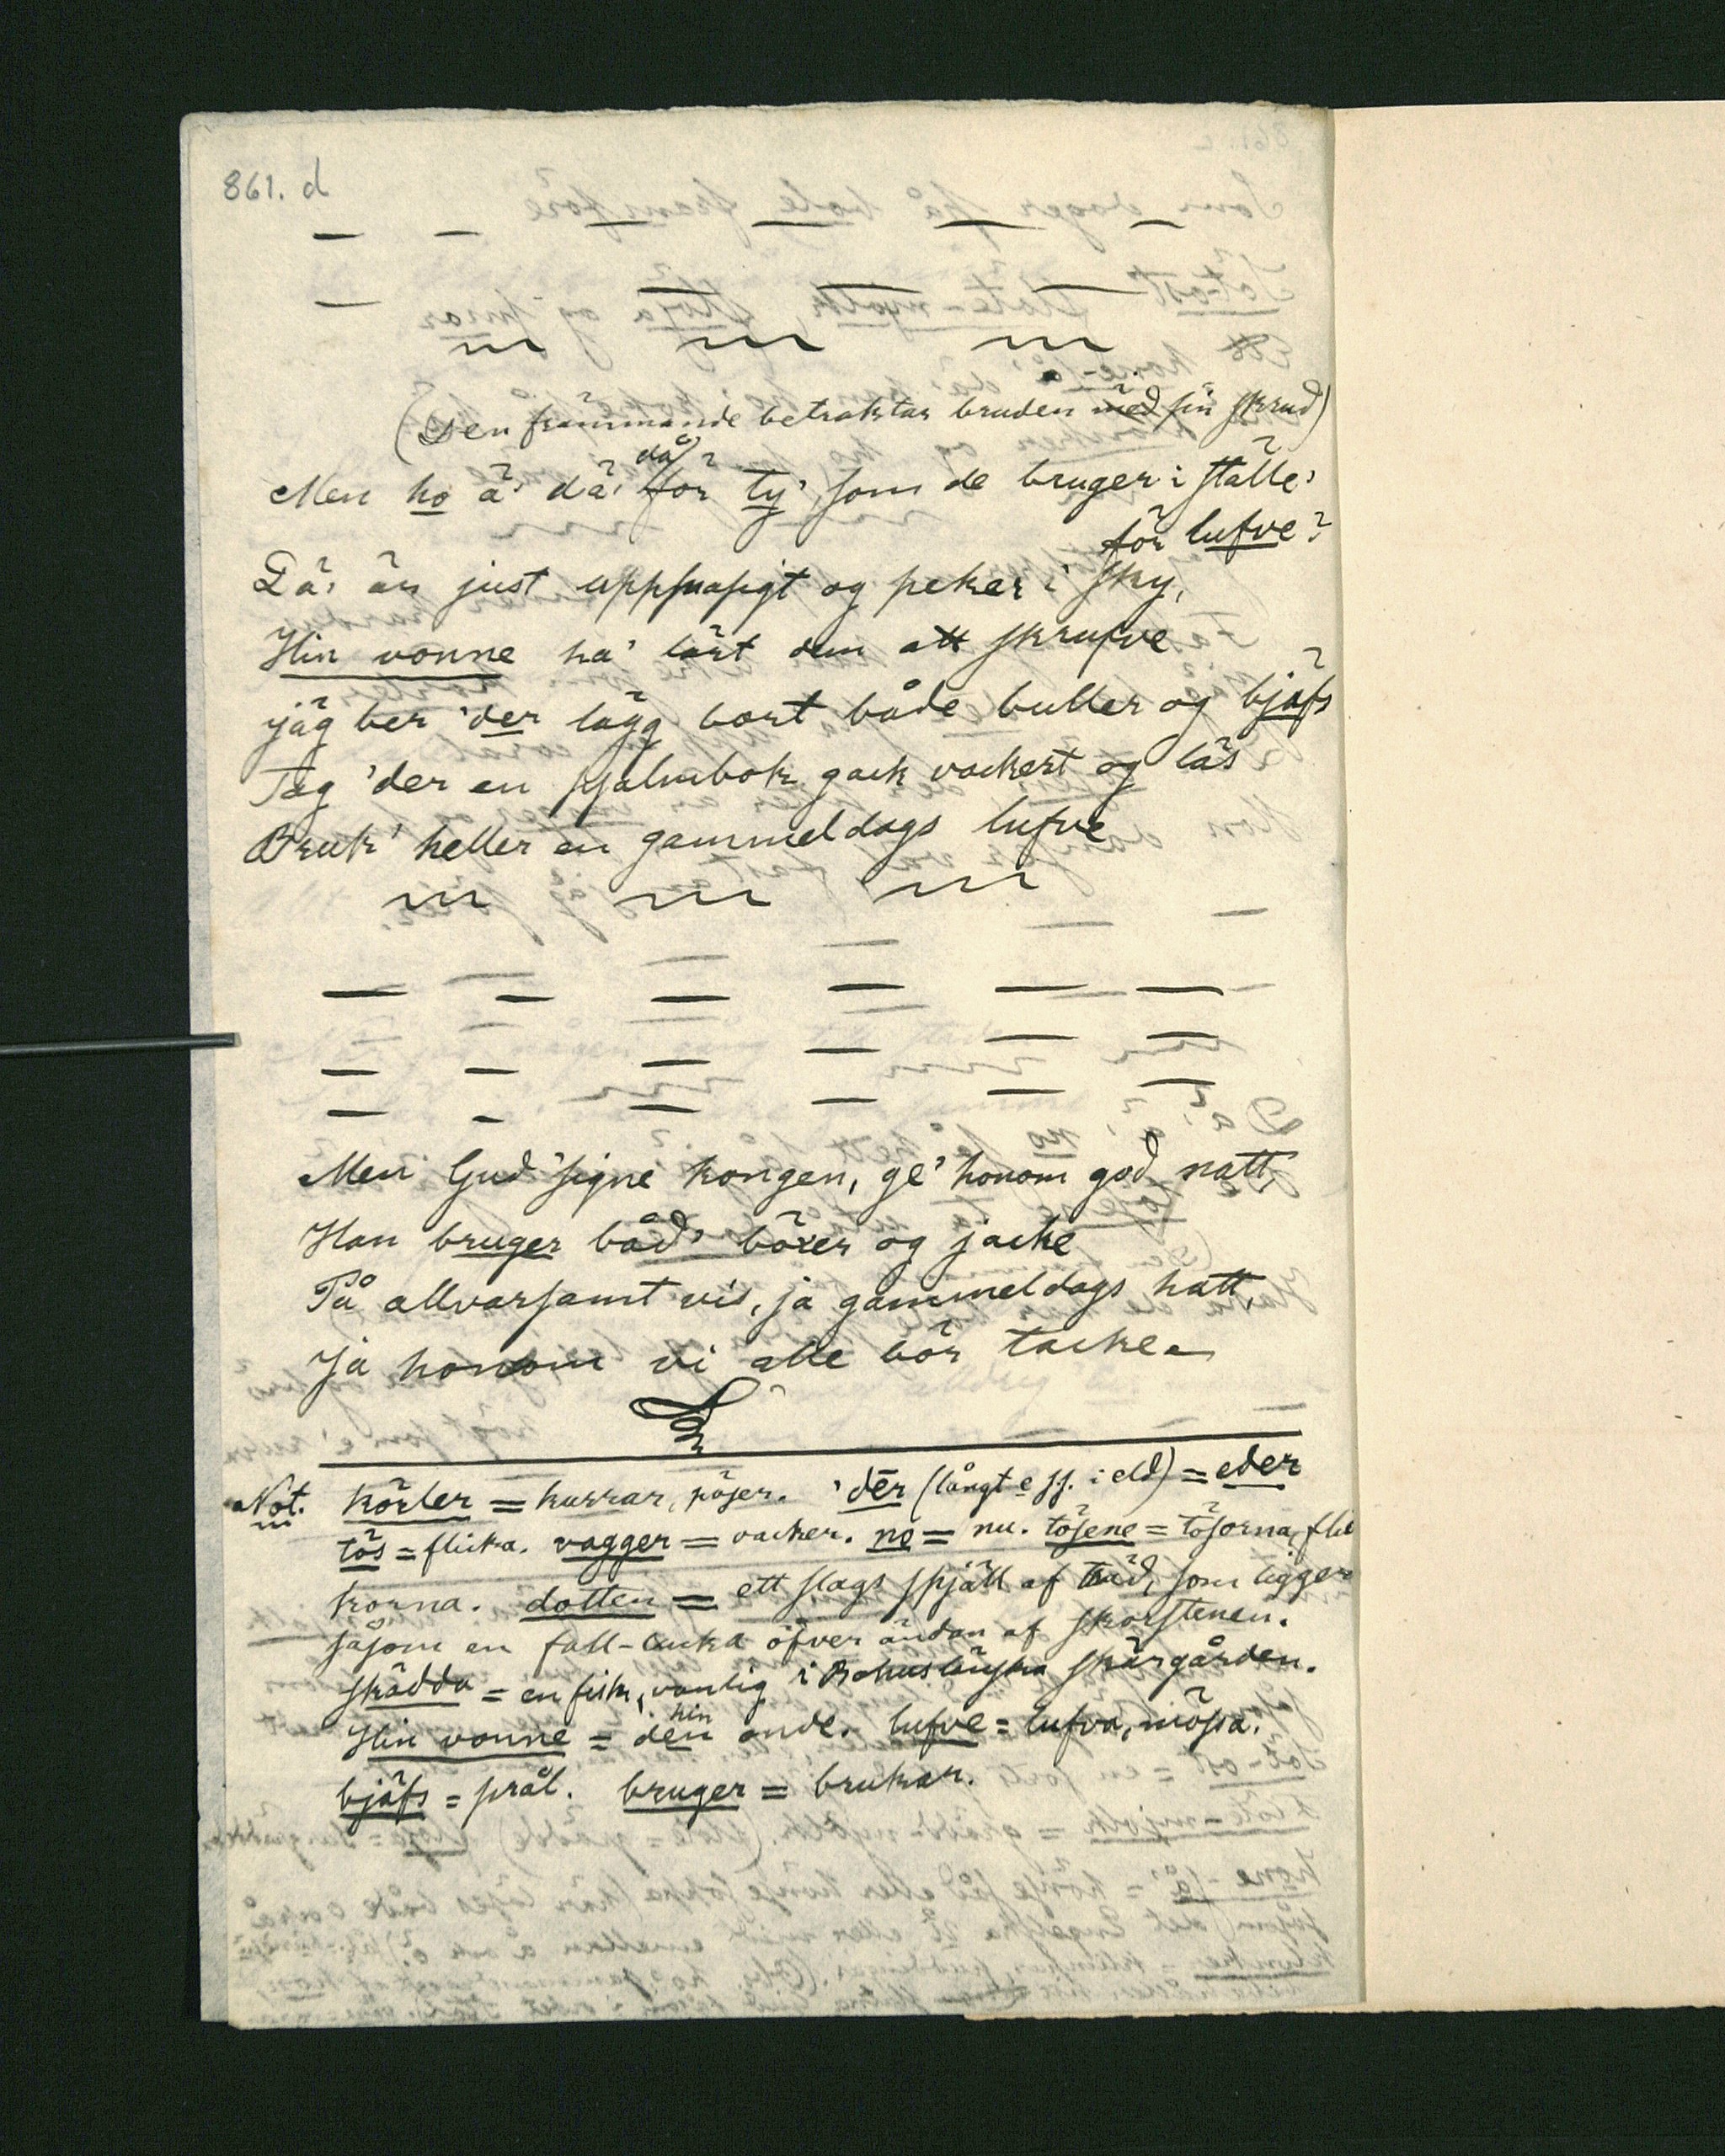 861. d
(Den främmande betraktar bruden med sin skrud)
Men ho ä' dä' då för ty' som de bruger i ställe'
för lufve?
Dä' är just uppnasigt og peker i sky,
Hin vonne ha' lärt dem att skrufve
jäg ber 'der lägg bort både buller og bjäfs
Tag 'der en psalmbok gack vackert og läs
Bruk' heller en gammeldags lufve
Men Gud signe kongen, ge' honom god natt,
Han bruger båd' böxer og jacke
På allvarsamt vis, ja gammeldags hatt,
Ja honom vi alle bör tacke
Not. körler = kurrar, pojer. 'dēr (långt e ss. i eld) = eder
tös = flicka. vagger = vacker. no = nu. tösene = tösorna, flic
korna. dotten = ett slags spjäll af träd, som ligger
såsom en fall-lucka öfver ändan af skorstenen.
skädda = en fisk, vanlig i Bohuslänska skärgården.
Hin vonne = den hin onde. lufve = lufva, mössa.
bjäfs = prål. bruger = brukar.